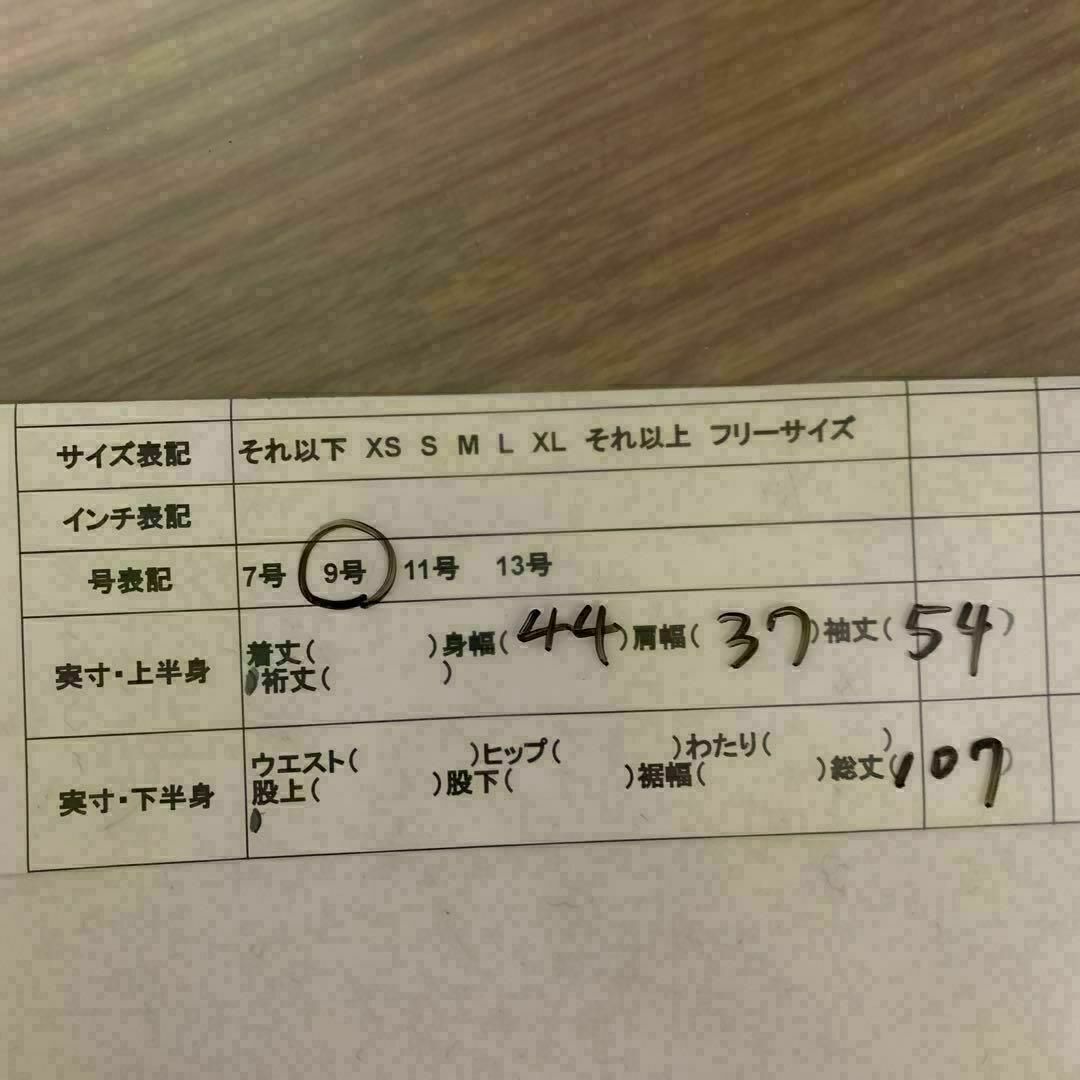 サイズ表記 それ以下 XS S M L XL それ以上 フリーサイズ
インチ表記
号表記 7号 9号 11号 13号
実寸・上半身 着丈( )身幅(44)肩幅(37)袖丈(54)
裄丈( )
実寸・下半身 ウエスト( )ヒップ( )わたり( )
股上( )股下( )裾幅( )総丈(107)